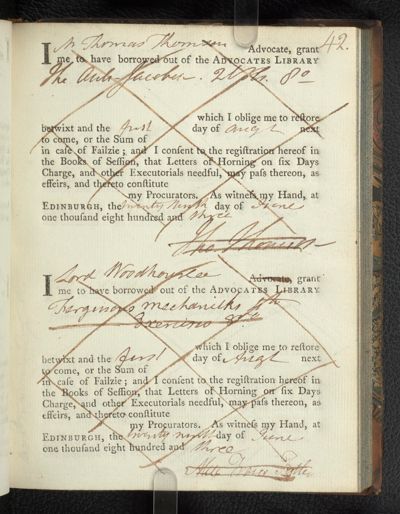 42.
I Mr Thomas Thomson Advocate, grant
me to have borrowed out of the ADVOCATES LIBRARY
The Anti-Jacobin. 2 vols. 8o
which I oblige me to reſtore
betwixt and the first day of Augt next
to come, or the Sum of
in caſe of Failzie; and I conſent to the regiſtration hereof in
the Books of Seſſion, that Letters of Horning on ſix Days
Charge, and other Executorials needful, may paſs thereon, as
effeirs, and thereto conſtitute
my Procurators. As witneſs my Hand, at
EDINBURGH, the twenty ninth day of June
one thouſand eight hundred and three
Tho Thomson
I Lord Woodhouselee Advocate, grant
me to have borrowed out of the ADVOCATES LIBRARY
Fergusons mechanicks
which I oblige me to reſtore
betwixt and the first day of Augt next
to come, or the Sum of
in caſe of Failzie; and I conſent to the regiſtration hereof in
the Books of Seſſion, that Letters of Horning on ſix Days
Charge, and other Executorials needful, may paſs thereon, as
effeirs, and thereto conſtitute
my Procurators. As witneſs my Hand, at
EDINBURGH, the twenty ninth day of June
one thouſand eight hundred and three